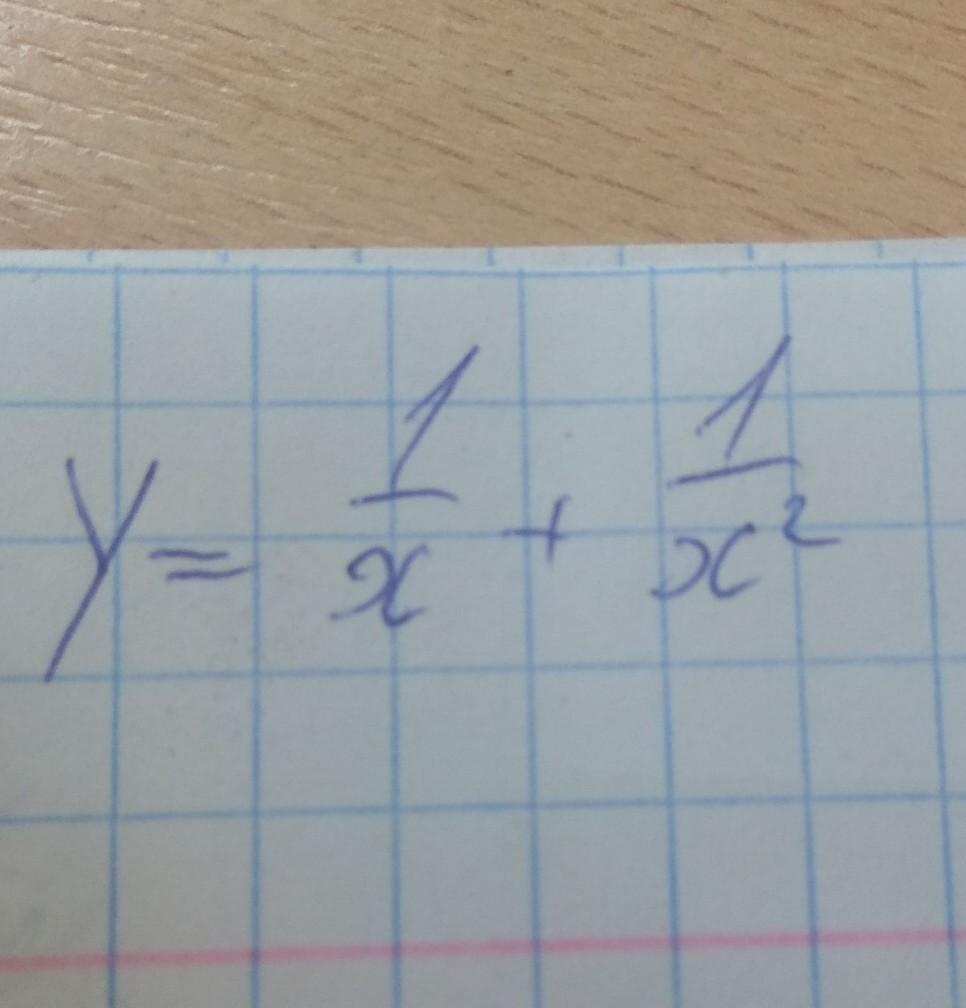 y = 1/x + 1/x²